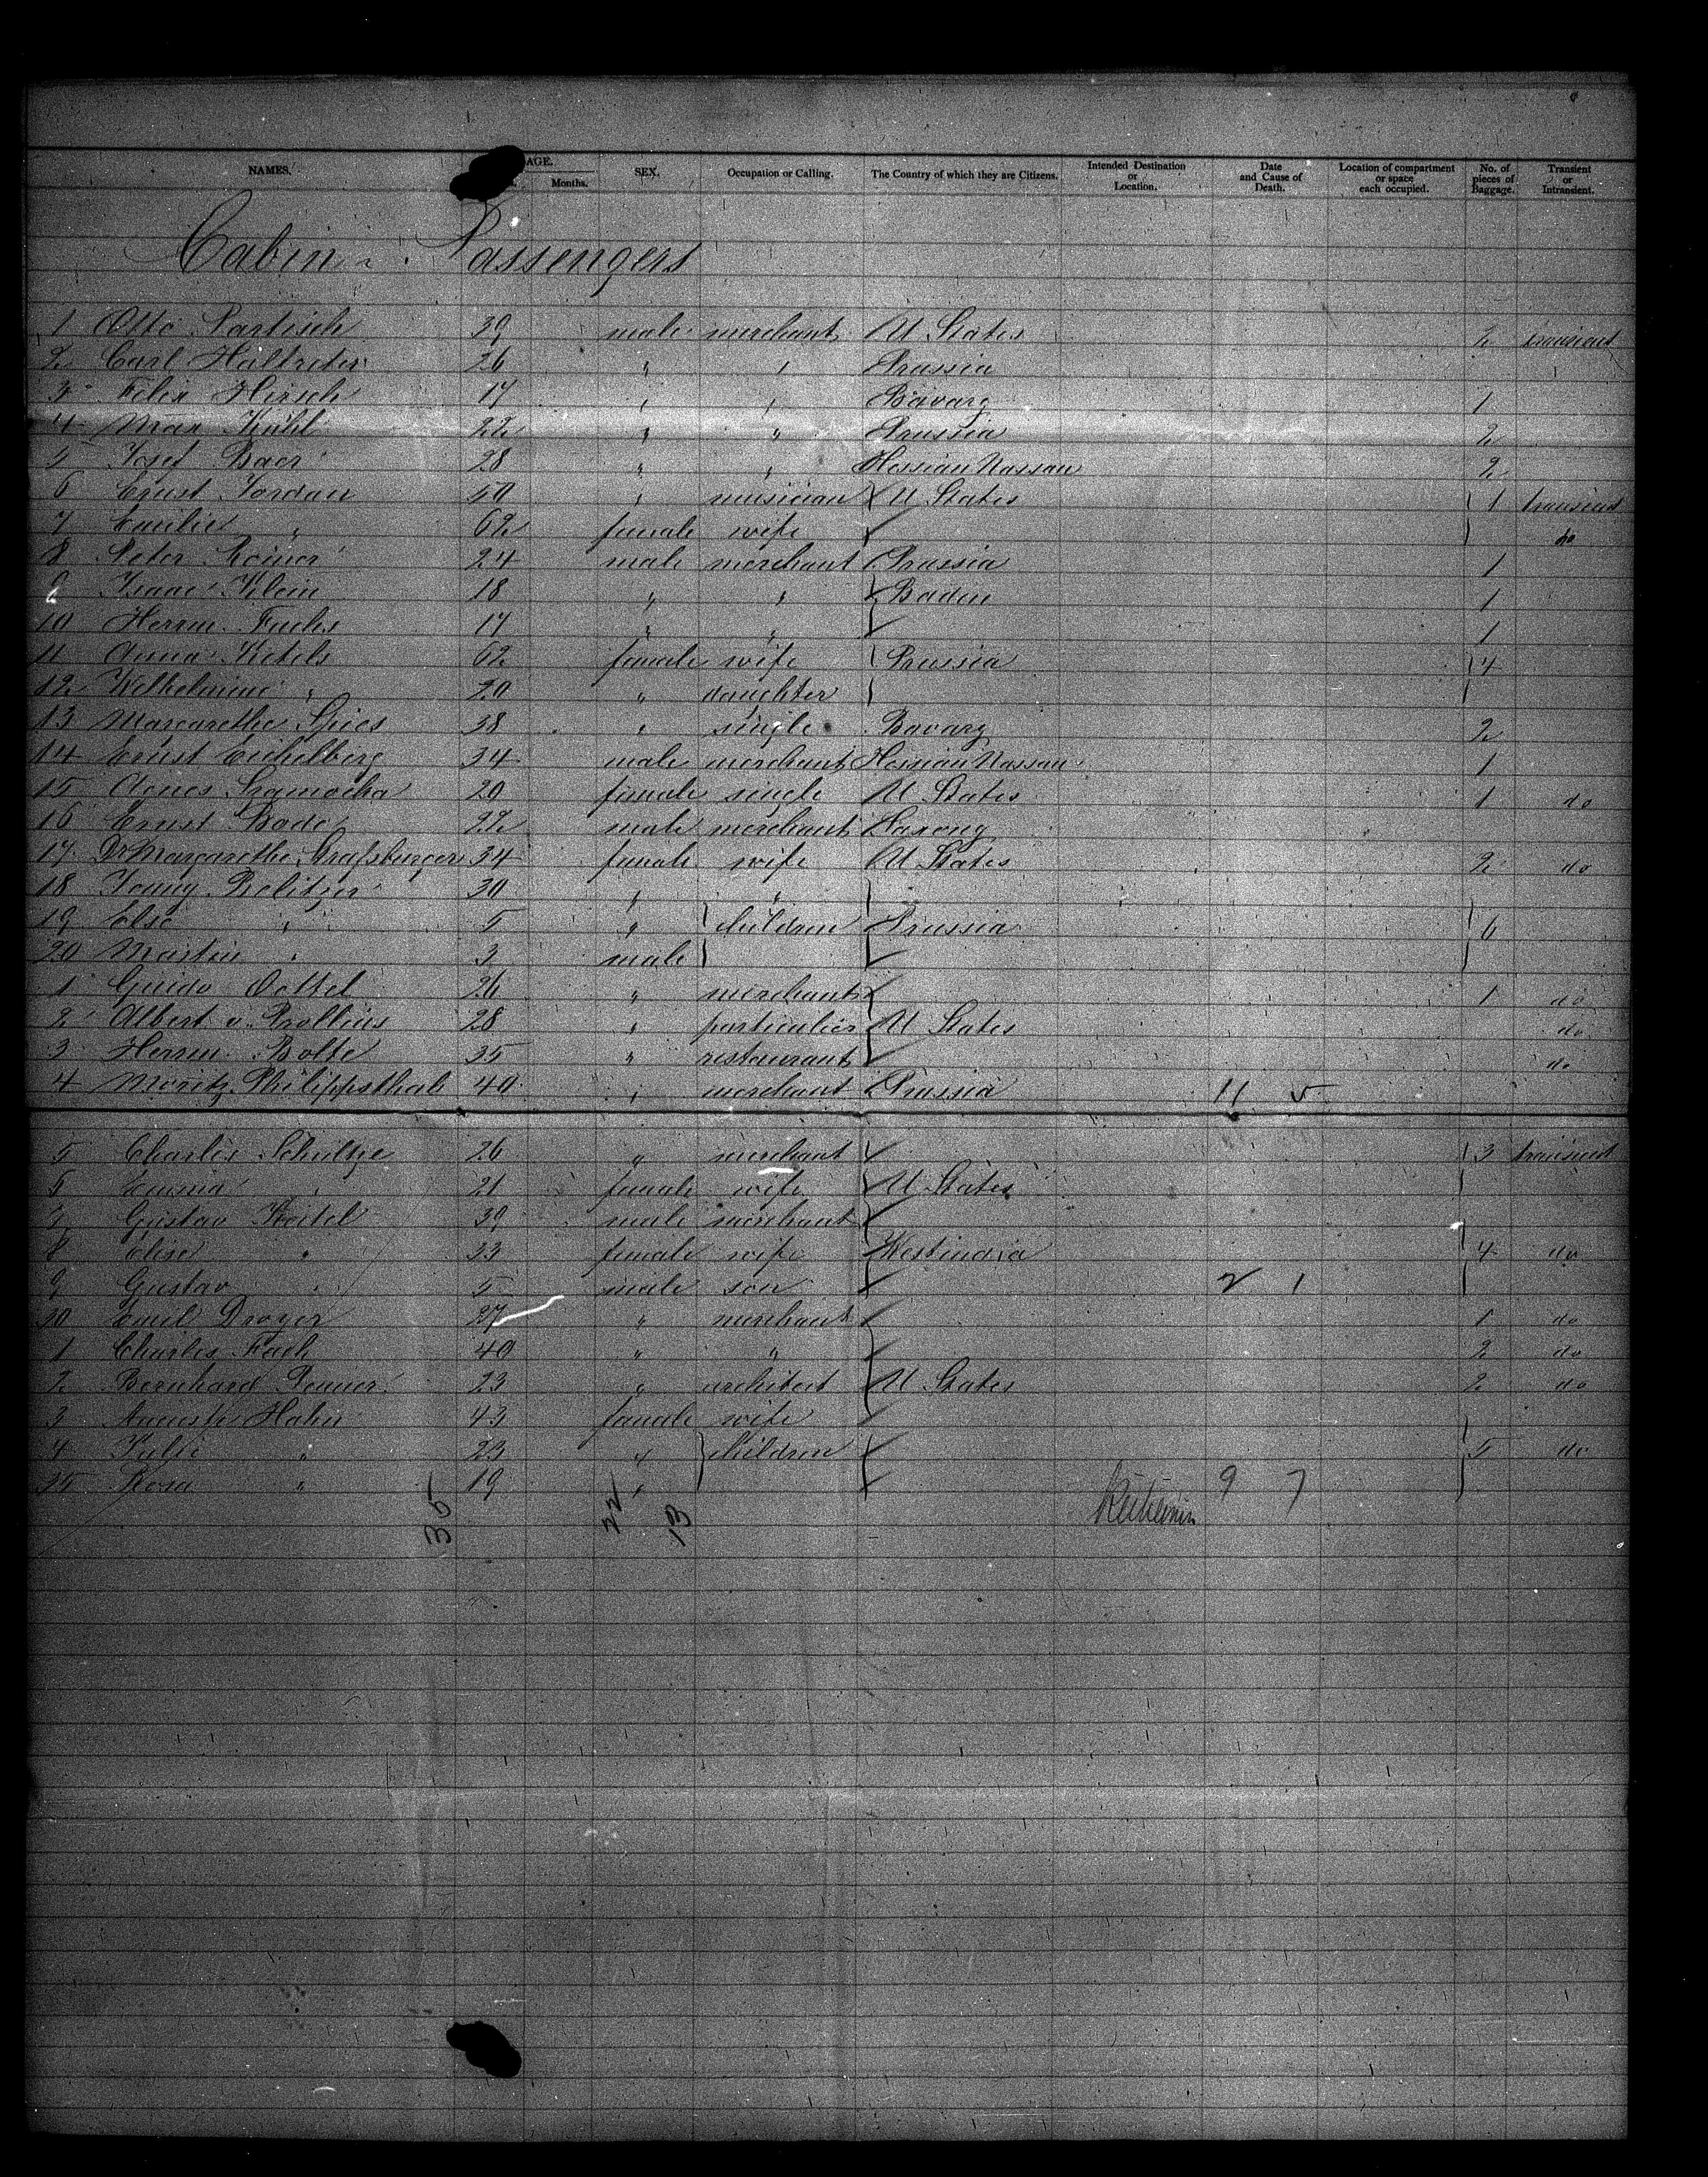 NAMES. AGE. Months. SEX. Occupation or Calling. The Country of which they are Citizens. Intended Destination or Location. Date and Cause of Death. Location of compartment or space each occupied. No. of pieces of Baggage. Transient or Intransient.
Cabin Passengers
1 Otto Partisch 39 male merchant U States 2 transient
2 Carl Haltreter 26 " " Prussia
3 Felix Hirsch 17 " " Bavary 1
4 Max Kühl 22 " " Prussia 2
5 Josef Baer 28 " " Hessian Nassau 2
6 Ernst Jordan 50 musician U States 1 transient
7 Emilie " 62 female wife do
8 Peter Reiner 24 male merchant Prussia 1
9 Isaac Klein 18 " " Baden 1
10 Herrm. Fuchs 17 " " 1
11 Anna Ketels 62 female wife Prussia 4
12 Wilhelmine " 20 " daughter
13 Margarethe Spies 38 " single Bavary 2
14 Ernst Eichelberg 34 male merchant Hessian Nassau 1
15 Agnes 20 female single U States 1 do
16 Ernst Bode 22 male merchant Saxony
17 Dr Margarethe Straßburger 34 female wife U States 2 do
18 Jenny Belitzer 30 " "
19 Else " 5 " children Prussia 6
20 Martin " 3 male
1 Guido Oettel 26 " merchant 1 do
2 Albert v. Prollius 28 " particulier U States do
3 Herrm. Bolte 35 " restaurant do
4 Moritz Philippsthal 40 " merchant Prussia 11 5
5 Charles Schultze 26 " merchant 3 transient
5 Emma " 21 female wife U States
Gustav Keitel 39 male merchant
8 Elise " 33 female wife Westindia 4 do
9 Gustav " 5 male son 2 1
30 Emil Dreyer 27 " merchant 1 do
1 Charles Fach 40 " " 2 do
2 Bernhard Penner 23 " architect U States 2 do
3 Auguste Hahn 43 female wife
4 Julie " 23 " children 5 do
35 Rosa " 19 " 9 7
35 22 13